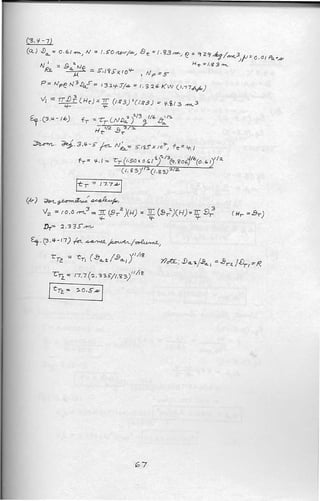 (3.4-7)
(a) Da = 0.61 m, N = 1.50 rev/s, Dt = 1.83 m, ρ = 929 kg/m³, μ = 0.01 Pa·s
Ht = 1.83 m
N'Re = Da²Nρ/μ = 5.185×10⁴, Np = 5
P = NpρN³Da⁵ = 1324 J/s = 1.324 KW (1.77 hp)
V₁ = πDt²/4 (Ht) = π/4 (1.83)²(1.83) = 4.813 m³
Eq. (3.4-16) fT = tT (NDa²)^2/3 g^1/6 Da^1/2 / Ht^1/2 Dt^3/2
From Fig. 3.4-5 for N'Re = 5.185×10⁴, ft = 4.1
fT = 4.1 = tT (1.50×0.61²)^2/3 (9.806)^1/6 (0.61)^1/2 / (1.83)^1/2 (1.83)^3/2
tT = 17.7 s
(b) For geometric scaleup.
V₂ = 10.0 m³ = π/4 (DT²)(H) = π/4 (DT²)(H) = π/4 DT³ (HT = DT)
DT = 2.335 m
Eq. (3.4-17) for same power/volume,
tT2 = tT1 (Da2/Da1)^11/18 Note: Da2/Da1 = DT2/DT1 = R
tT2 = 17.7 (2.335/1.83)^11/18
tT2 = 20.5 s
67